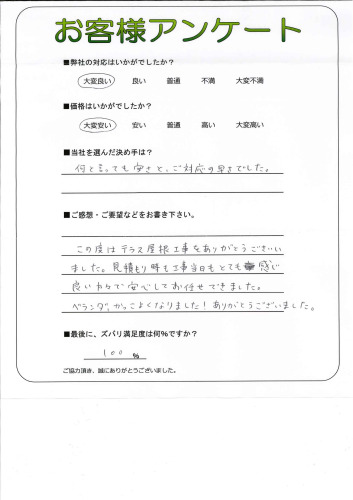 お客様アンケート
■弊社の対応はいかがでしたか？
大変良い 良い 普通 不満 大変不満
■価格はいかがでしたか？
大変安い 安い 普通 高い 大変高い
■当社を選んだ決め手は？
何と言っても安さと、ご対応の早さでした。
■ご感想・ご要望などをお書き下さい。
この度はテラス屋根工事をありがとうござい
ました。見積もり時も工事当日もとても感じ
良いかたで安心してお任せできました。
ベランダ、かっこよくなりました！ありがとうございました。
■最後に、ズバリ満足度は何％ですか？
100 ％
ご協力頂き、誠にありがとうございました。